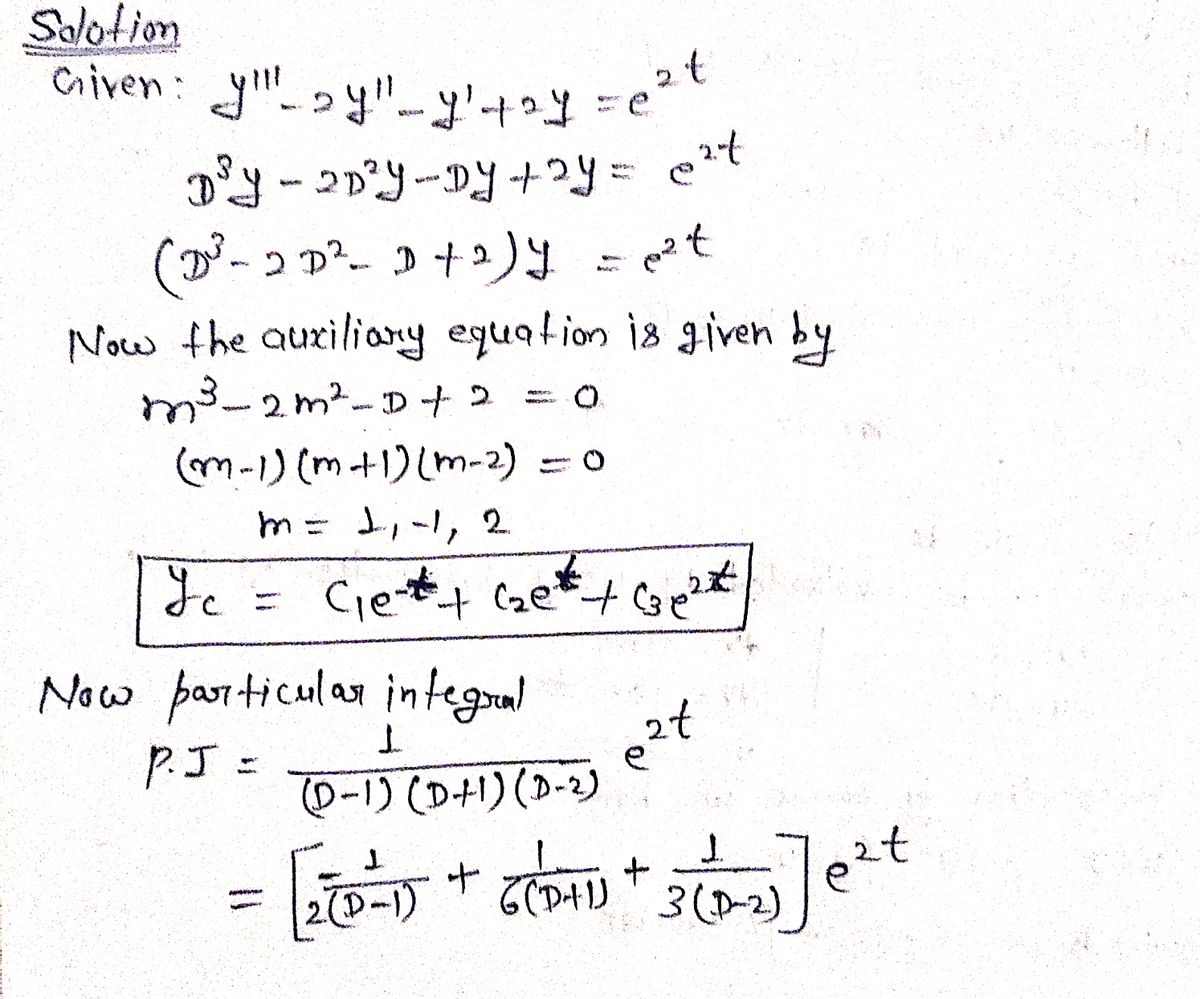 Solotion
Given: y''' - 2y'' - y' + 2y = e^{2t}
D³y - 2D²y - Dy + 2y = e^{2t}
(D³ - 2D² - D + 2)y = e^{2t}
Now the auxiliary equation is given by
m³ - 2m² - D + 2 = 0
(m-1)(m+1)(m-2) = 0
m = 1, -1, 2
y_c = C₁e^{-t} + C₂e^{t} + C₃e^{2t}
Now particular integral
P.I = \frac{1}{(D-1)(D+1)(D-2)} e^{2t}
= [\frac{-1}{2(D-1)} + \frac{1}{6(D+1)} + \frac{1}{3(D-2)}] e^{2t}